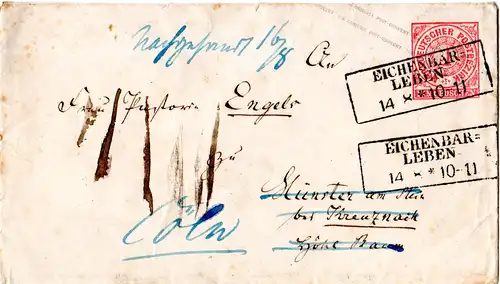 Nachgesandt 16/8
An
DEUTSCHER POSTBEZIRK
EICHENBAR-
LEBEN
14 * 10-11
Frau Pastorin Engels
EICHENBAR=
LEBEN
14 * 10-11
zu
Münster am Stein
bei Kreuznach
Cöln